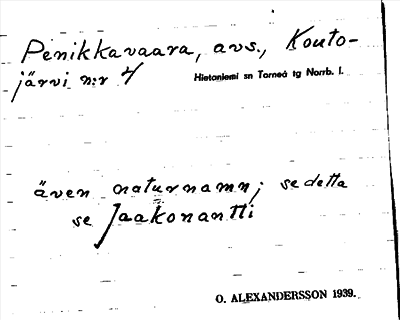 Penikkavaara, avs., Kouto-
järvi n:r 4
Hietaniemi sn Torneå tg Norrb. l.
även naturnamn; se detta
se Jaakonantti
O. ALEXANDERSSON 1939.